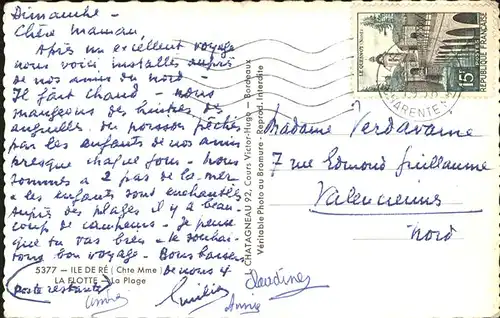 Dimanche -
Chère Maman
Après un excellent voyage
nous voici installés auprès
de nos amis du Nord -
Il fait chaud - nous
mangeons des huîtres des
anguilles du poisson pêchés
par les enfants de nos amis
presque chaque jour - Nous
sommes à 2 pas de la mer
- les enfants sont enchantés
des plages il y a beau-
coup de campeurs - Je pense
que tu vas bien - te souhai-
tons bon voyage - Bons baisers
de nous 4
5377 - ILE DE RÉ (Chte Mme)
LA FLOTTE - La Plage
poste restante
Claudine
André
Emilie
Annie
CHATAGNEAU 92, Cours Victor-Hugo - Bordeaux
Véritable Photo au Bromure - Reprod. Interdite
LE QUESNOY (Nord)
15F
POSTES
REPUBLIQUE FRANÇAISE
CHARENTE
Madame Verdavaine
7 rue Edmond Guillaume
Valenciennes
Nord